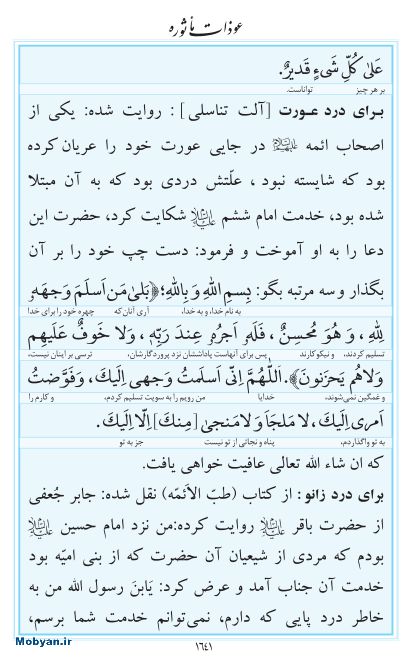 عوذات مأثوره
عَلىٰ كُلِّ شَىْءٍ قَديرٌ.
بر هر چیز تواناست.
برای درد عورت [آلت تناسلی] : روایت شده: یکی از
اصحاب ائمه علیهم‌السلام در جایی عورت خود را عریان کرده
بود که شایسته نبود ، علّتش دردی بود که به آن مبتلا
شده بود، خدمت امام ششم علیه‌السلام شکایت کرد، حضرت این
دعا را به او آموخت و فرمود: دست چپ خود را بر آن
بگذار و سه مرتبه بگو: بِسمِ اللهِ وَ بِاللهِ؛ ﴿بَلىٰ مَن اَسلَمَ وَجهَهُ
به نام خدا، و به خدا، آری آنان‌که چهره خود را برای خدا
لِلهِ ، وَ هُوَ مُحسِنٌ ، فَلَهُ اَجرُهُ عِندَ رَبِّهِ ، وَلا خَوفٌ عَلَيهِم
تسلیم کردند، و نیکوکارند پس برای آنهاست پاداششان نزد پروردگارشان، ترسی بر اینان نیست،
وَلاهُم يَحزَنونَ﴾. اَللّٰهُمَّ اِنّى اَسلَمتُ وَجهى اِلَيكَ، وَفَوَّضتُ
و غمگین نمی‌شوند، خدایا من رویم را به سویت تسلیم کردم، و کارم را
اَمرى اِلَيكَ، لا مَلجَاَ وَ لا مَنجىٰ [مِنكَ] اِلّا اِلَيكَ.
به تو واگذاردم، پناه و نجاتی از تو نیست جز به تو
که ان شاء الله تعالی عافیت خواهی یافت.
برای درد زانو : از کتاب (طبّ الائمّه) نقل شده: جابر جُعفی
از حضرت باقر علیه‌السلام روایت کرده:من نزد امام حسین علیه‌السلام
بودم که مردی از شیعیان آن حضرت که از بنی امیّه بود
خدمت آن جناب آمد و عرض کرد: یَابنَ رسول الله من به
خاطر درد پایی که دارم، نمی‌توانم خدمت شما برسم،
Mobyan.ir
١٦٤١